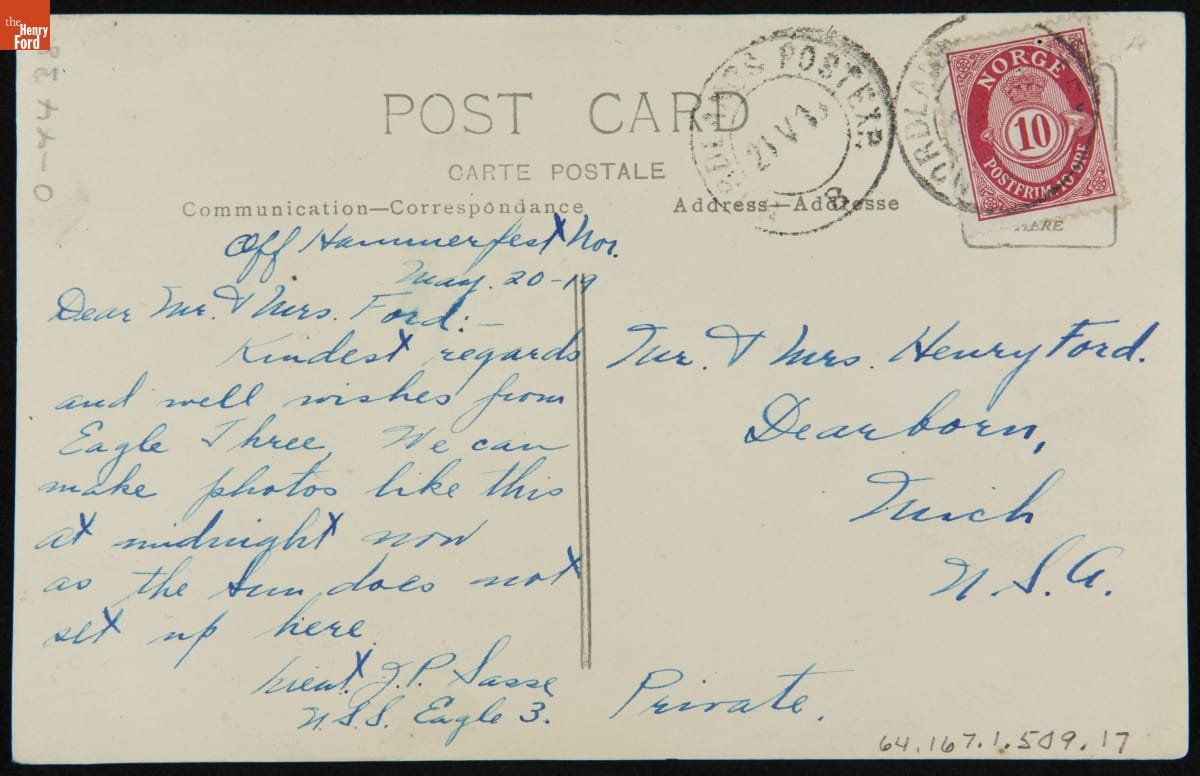 the
Henry
Ford
0-4438
POST CARD
CARTE POSTALE
Communication—Correspondance
Address—Addresse
POSTEXP.
21 V
8
NORDLAN
NORGE
10
POSTFRIM
10 ØRE
HERE
Off Hammerfest Nor.
May. 20-19
Dear Mr. & Mrs. Ford:—
Kindest regards
and well wishes from
Eagle Three. We can
make photos like this
at midnight now
as the sun does not
set up here.
Lieut. J.P. Sasse
U.S.S. Eagle 3.
Mr. & Mrs. Henry Ford.
Dearborn,
Mich
U.S.A.
Private.
64.167.1.509.17